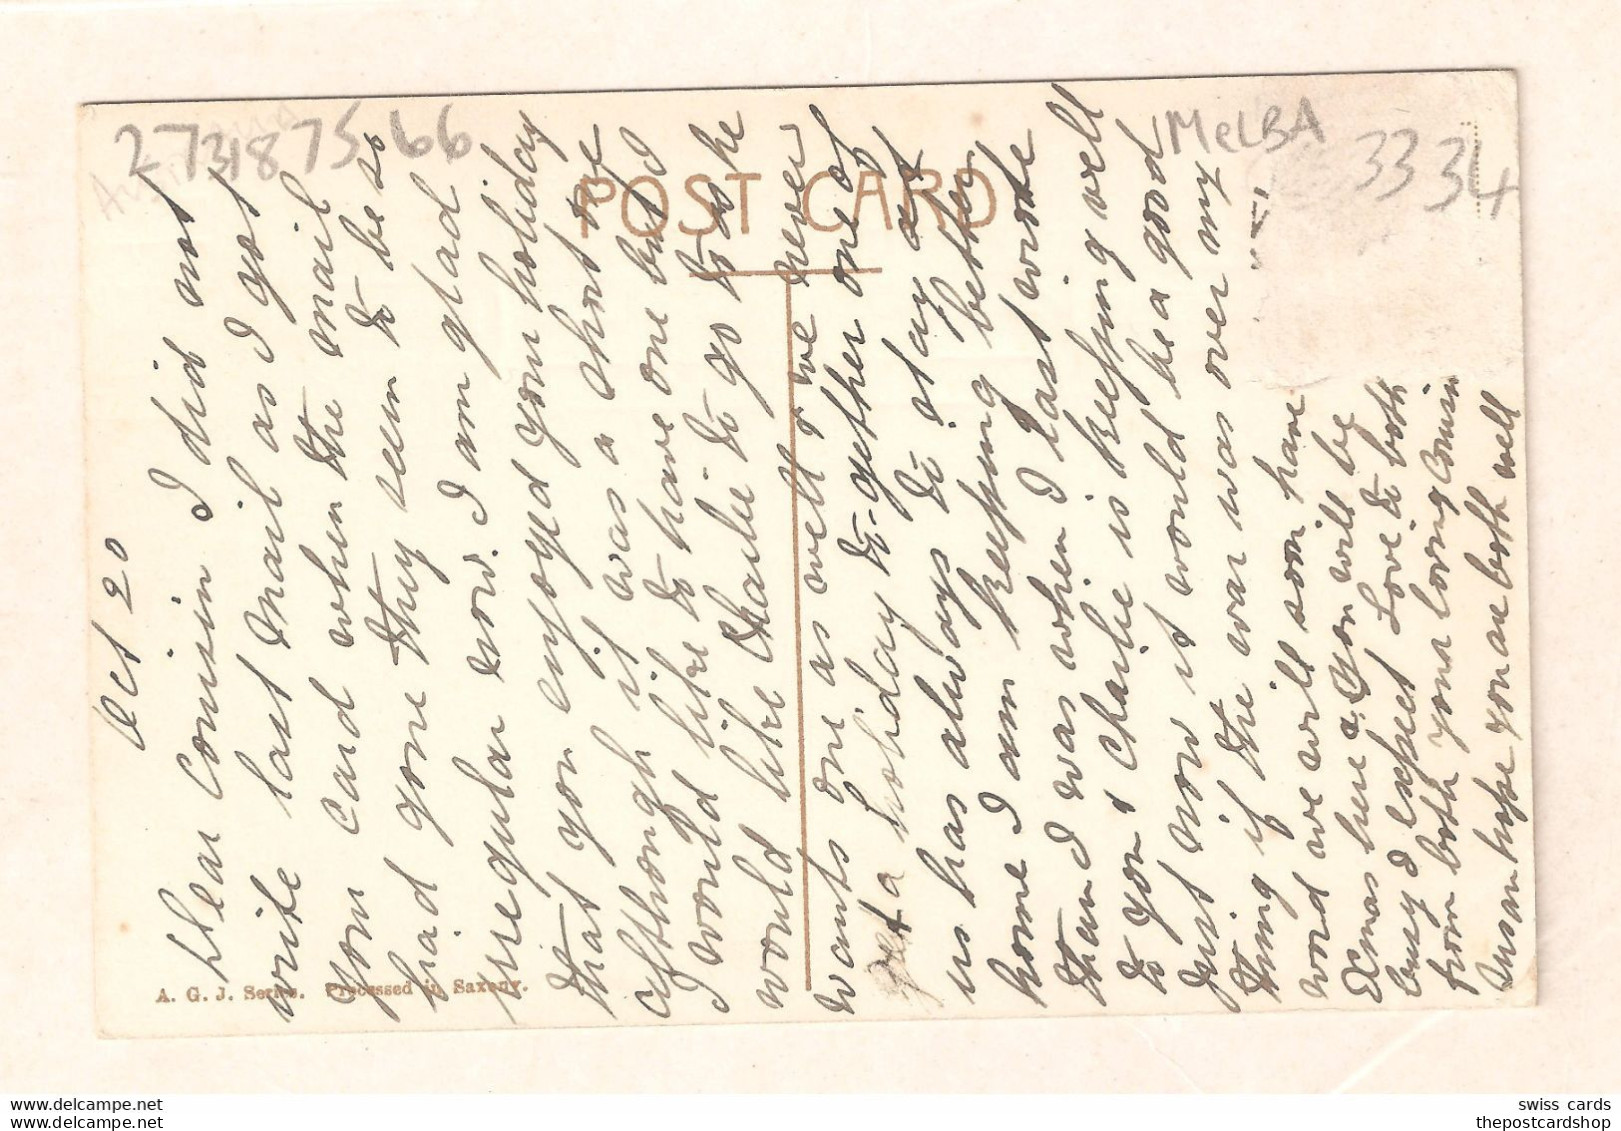 Oct 20
Dear Cousin I did not
write last mail as I got
your card when the mail
had gone they seem to be so
irregular now. I am glad
that you enjoyed your holiday
although it was a short one
I would like to have one but I
would like Charlie to go to as he
wants one as well & we never
get a holiday to-gether one of
us has always to stay at
home I am keeping better
than I was when I last wrote
to you & Charlie is keeping well
just now it would be a good
thing if the war was over my
word we will soon have
Xmas here & you will be
busy I expect Love to both
from both your loving Cousin
Susan hope you are both well
POST CARD
A. G. J. Series. Processed in Saxony.
27318 75 66
MELBA
33 34
swiss cards
thepostcardshop